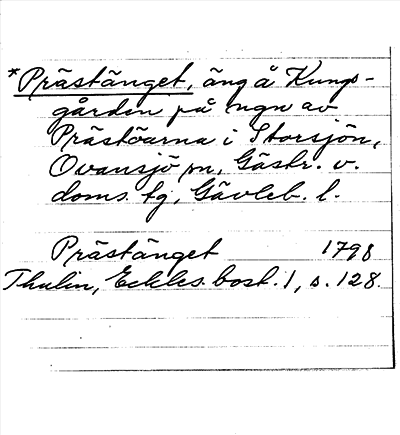 *Prästänget, äng å Kungs-
gården på ngn av
Prästöarna i Storsjön,
Ovansjö sn, Gästr. v.
doms. tg, Gävleb. l.
Prästänget 1798
Thulin, Eckles. bost. 1, s. 128.